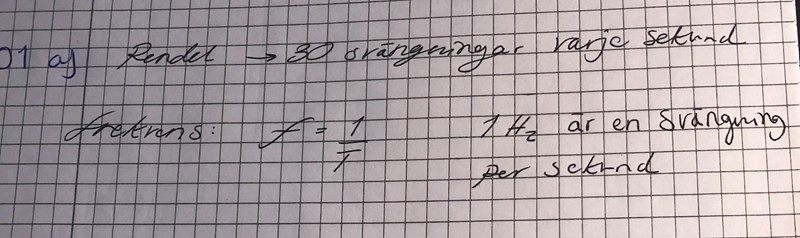 01 a) Pendel → 30 svängningar varje sekund
frekvens: f = 1/T 1 Hz är en svängning
per sekund